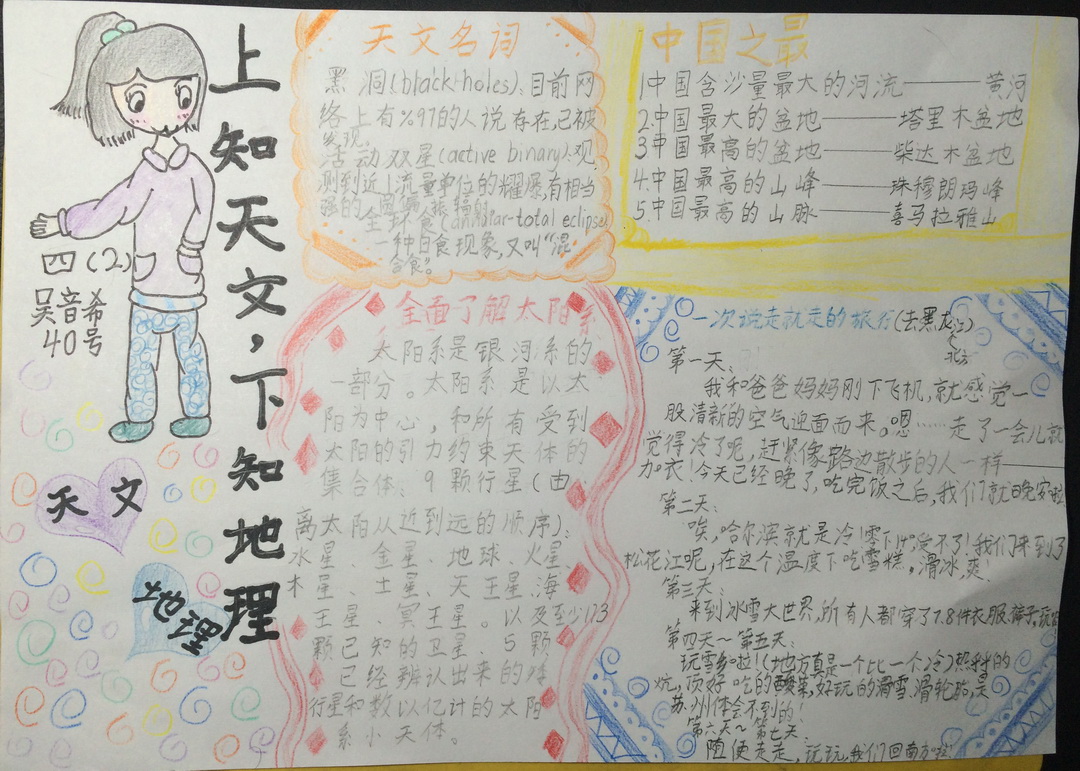 上知天文，下知地理
四(2)
吴音希
40号
天文
地理
天文名词
黑洞(black holes)：目前网
络上有%97的人说存在，已被
发现。
活动双星(active binary)：观
测到近1流量单位的耀屡，有相当
强的圆偏振辐射
全环食(annular-total eclipse)
一种日食现象，又叫“混
合食”。
中国之最
1.中国含沙量最大的河流———黄河
2.中国最大的盆地———塔里木盆地
3中国最高的盆地———柴达木盆地
4.中国最高的山峰———珠穆朗玛峰
5.中国最高的山脉———喜马拉雅山
全面了解太阳系
太阳系是银河系的
一部分。太阳系是以太
阳为中心 和所有受到
太阳的引力约束天体的
集合体：9颗行星(由
离太阳从近到远的顺序)：
水星、金星、地球、火星、
木星、土星、天王星、海
王星 冥王星。以及至少173
颗已知的卫星、5颗
已经辨认出来的矮
行星和数以亿计的太阳
系小天体。
一次说走就走的旅行(去黑龙江)
北方
第一天：
我和爸爸妈妈刚下飞机，就感觉一
股清新的空气迎面而来。嗯……走了一会儿就
觉得冷了呢，赶紧像路边散步的人一样——
加衣！今天已经晚了，吃完饭之后，我们就晚安啦
第二天：
唉，哈尔滨就是冷！零下 受不了！我们来到了
松花江呢，在这个温度下吃雪糕，滑冰，爽！
第三天：
来到冰雪大世界，所有人都穿了7.8件衣服 裤子，
第四天～第五天：
玩雪 啦！(地方真是一个比一个冷) 的
炕，顶好吃的酸菜，好玩的滑雪 滑轮胎，天
苏州体会不到的！
第六天～第七天：
随便走走，玩玩，我们回南方